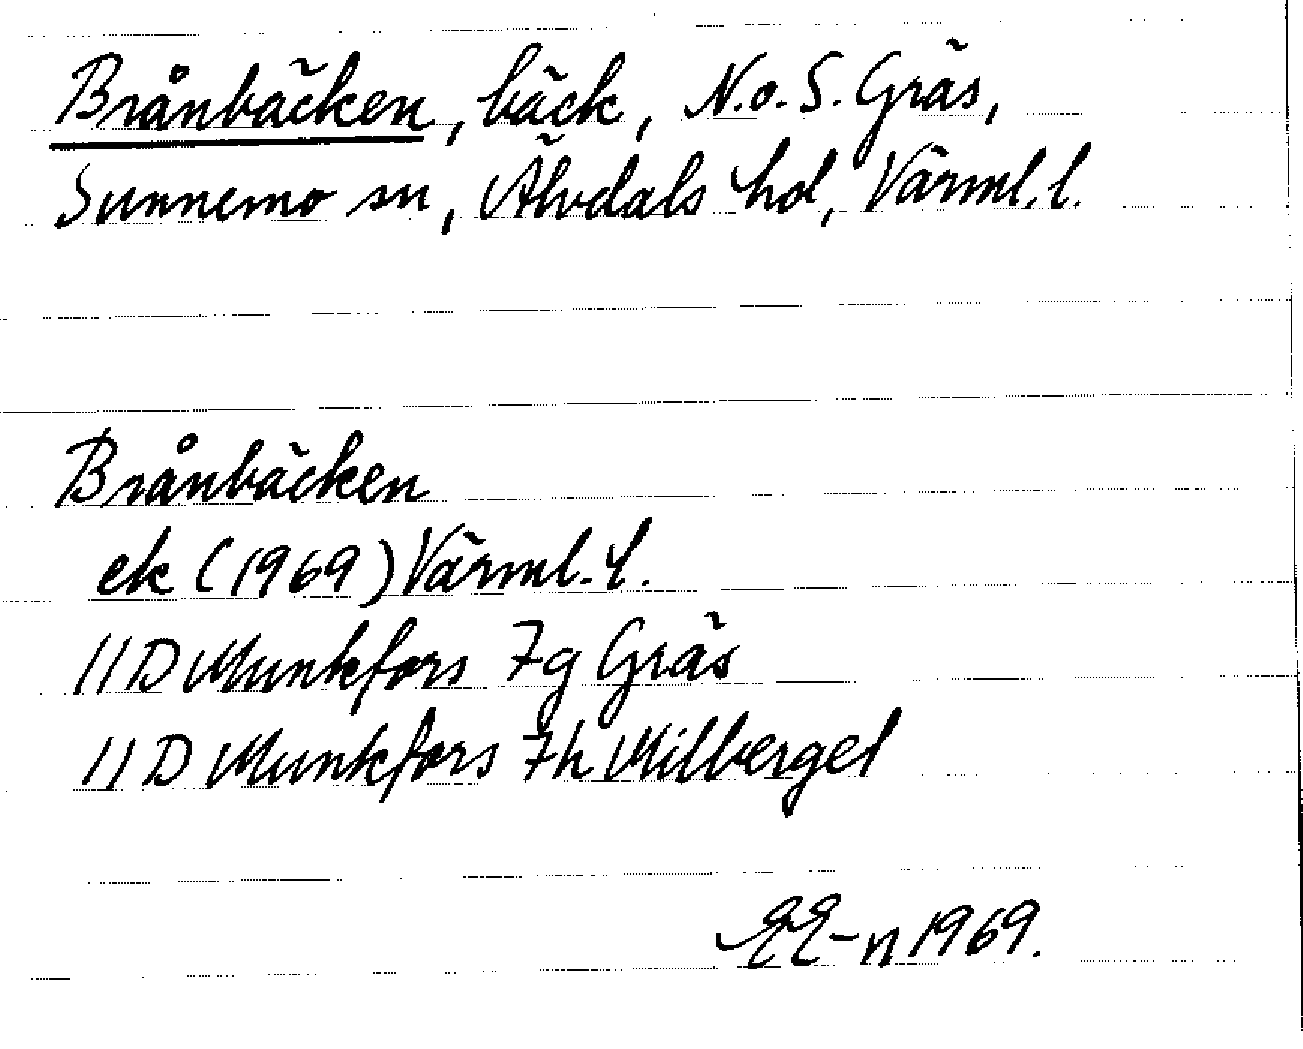 Brånbäcken, bäck, N.o.S. Gräs,
Sunnemo sn, Älvdals hd, Värml. l.
Brånbäcken
ek (1969) Värml. l.
11D Munkfors 7g Gräs
11D Munkfors 7h Milberget
EE-n 1969.